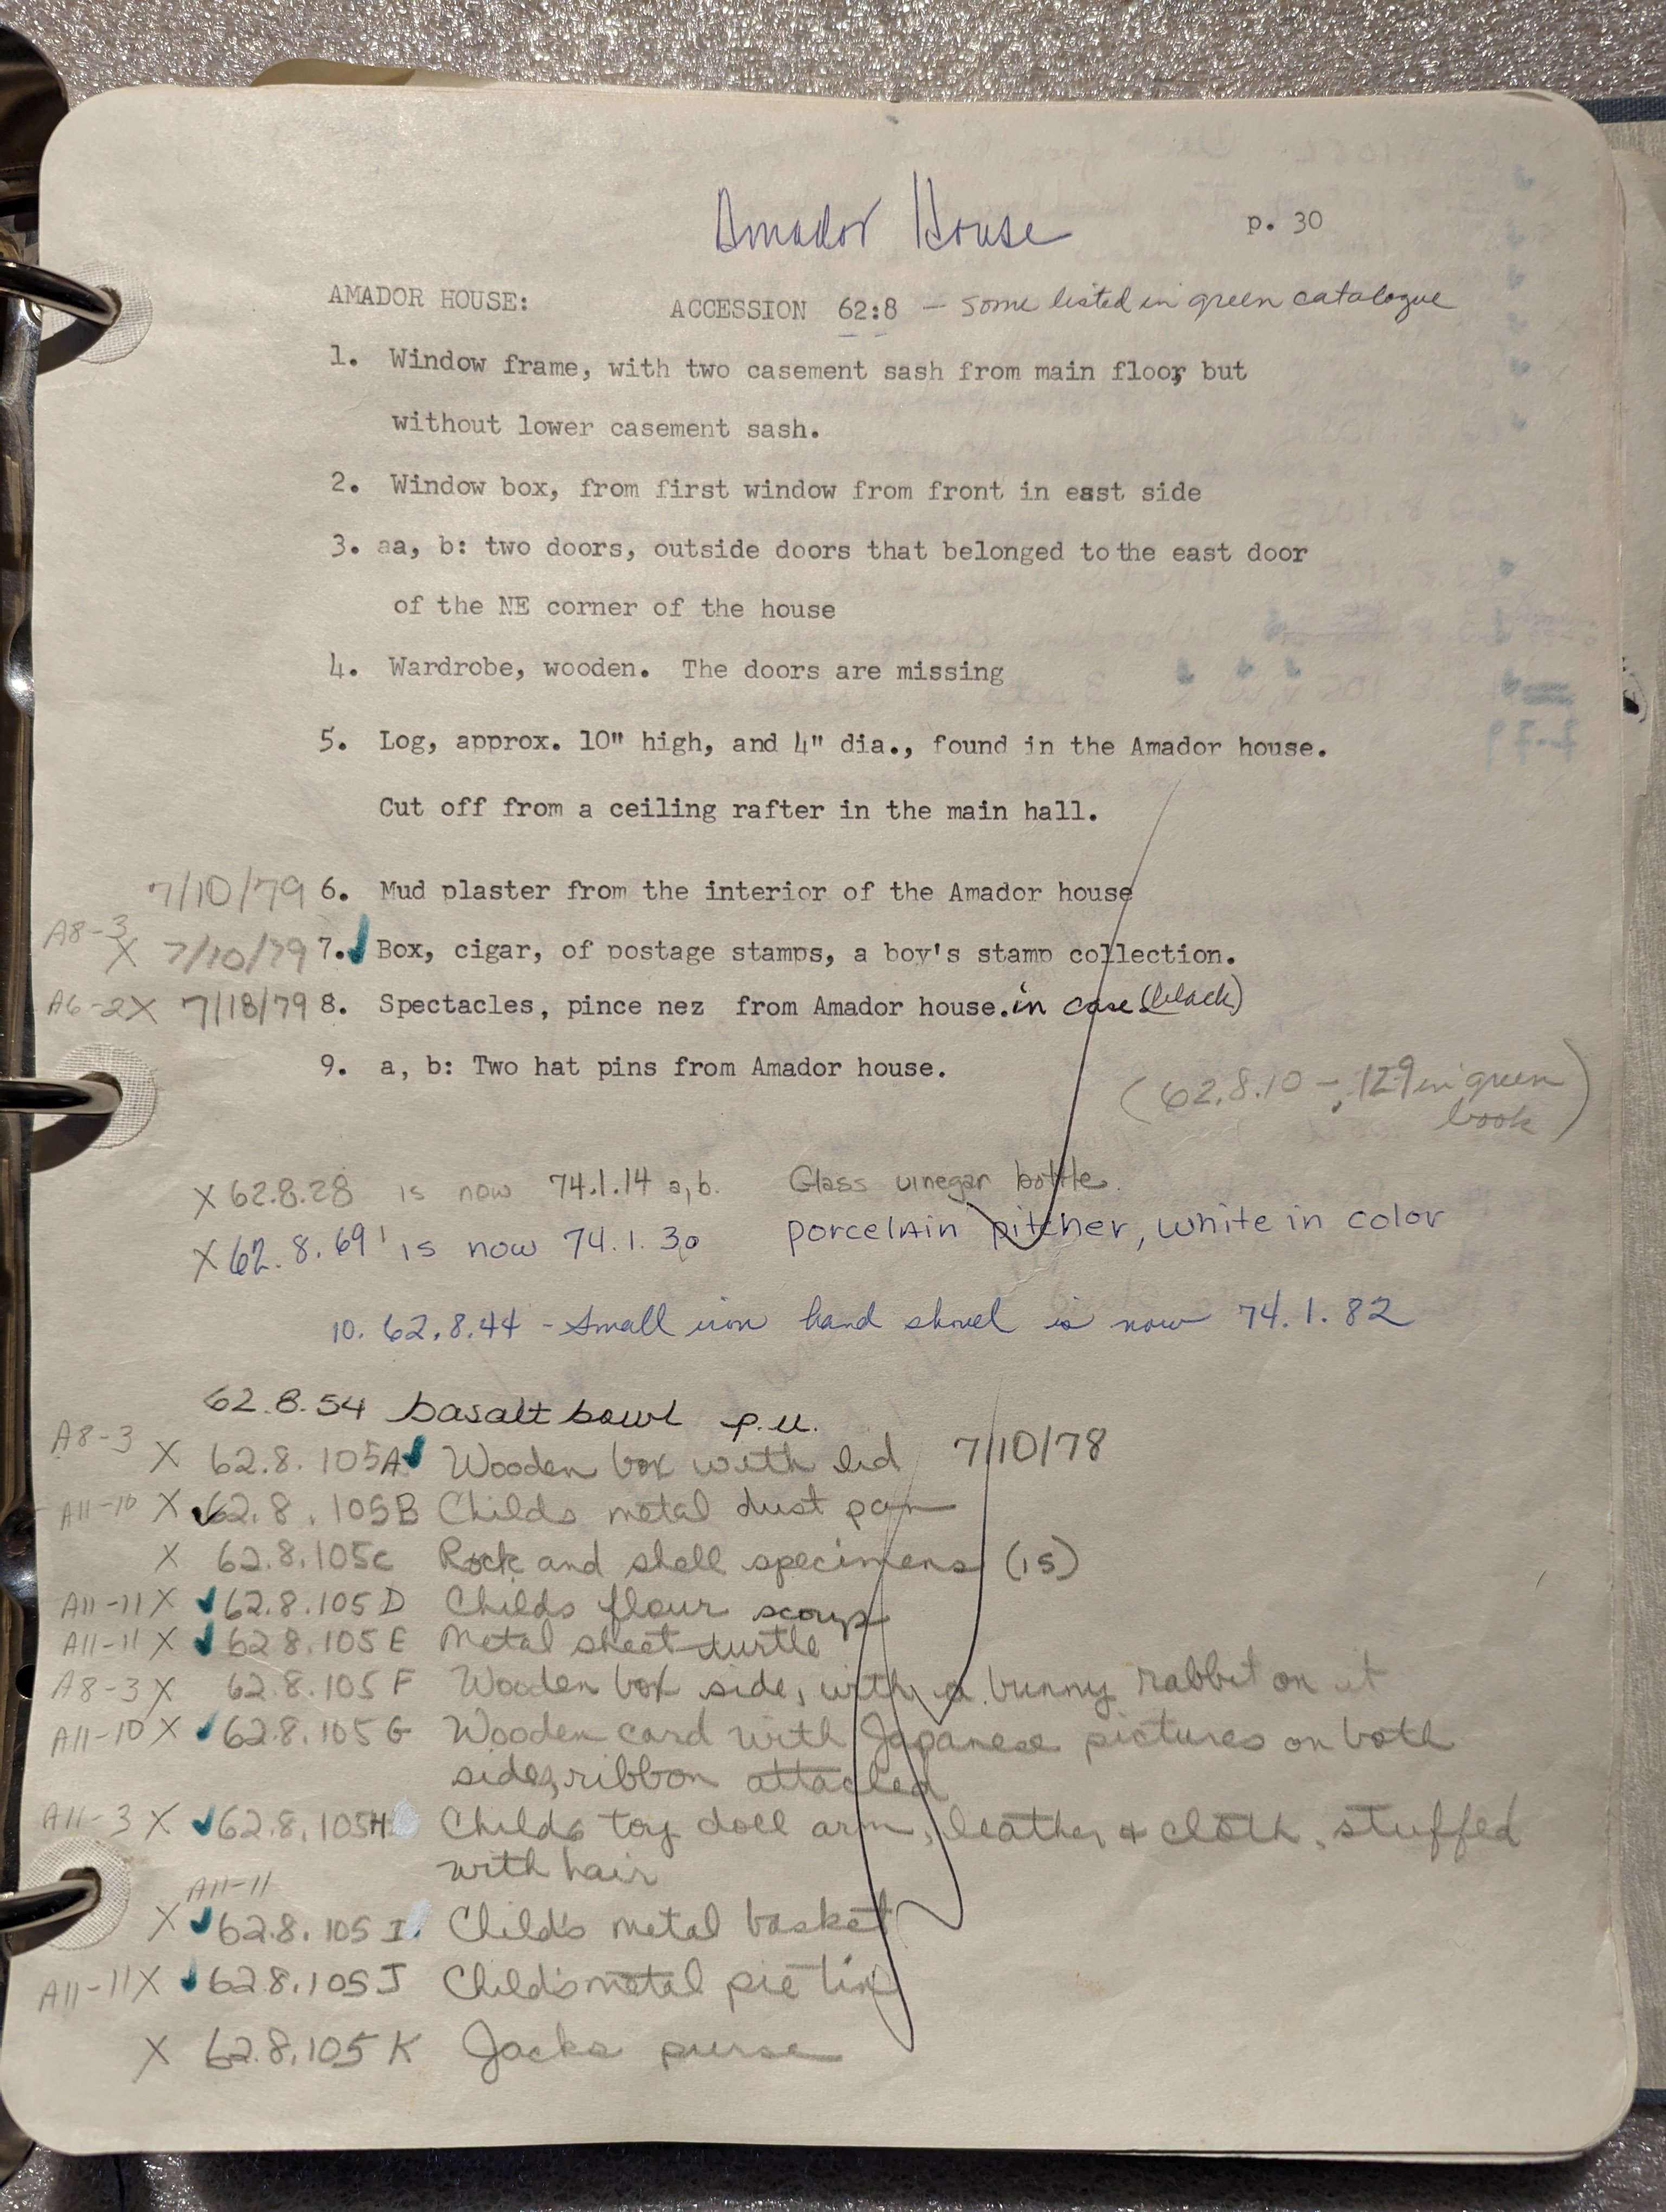 Amador House
p. 30
AMADOR HOUSE: ACCESSION 62:8 – some listed in green catalogue
1. Window frame, with two casement sash from main floor, but
without lower casement sash.
2. Window box, from first window from front in east side
3. aa, b: two doors, outside doors that belonged to the east door
of the NE corner of the house
4. Wardrobe, wooden. The doors are missing
5. Log, approx. 10" high, and 4" dia., found in the Amador house.
Cut off from a ceiling rafter in the main hall.
7/10/79 6. Mud plaster from the interior of the Amador house
A8-3
X 7/10/79 7. Box, cigar, of postage stamps, a boy's stamp collection.
A6-2X 7/18/79 8. Spectacles, pince nez from Amador house. in case (black)
9. a, b: Two hat pins from Amador house.
(62.8.10 – .129 in green
book)
X 62.8.28 is now 74.1.14 a,b. Glass vinegar bottle.
X 62.8.69 is now 74.1.30 porcelain pitcher, white in color
10. 62.8.44 - Small iron hand shovel is now 74.1.82
62.8.54 basalt bowl p.u.
A8-3 X 62.8.105A Wooden box with lid 7/10/78
A11-10 X 62.8.105B Childs metal dust pan
X 62.8.105c Rock and shell specimens (15)
A11-11 X 62.8.105D Childs flour scoup
A11-11 X 62.8.105E Metal sheet turtle
A8-3 X 62.8.105F Wooden box side, with a bunny rabbit on it
A11-10 X 62.8.105G Wooden card with Japanese pictures on both
sides, ribbon attached
A11-3 X 62.8.105H Childs toy doll arm, leather & cloth, stuffed
with hair
A11-11
X 62.8.105I. Child's metal basket
A11-11X 62.8.105J Child's metal pie tin
X 62.8.105K Jacks purse